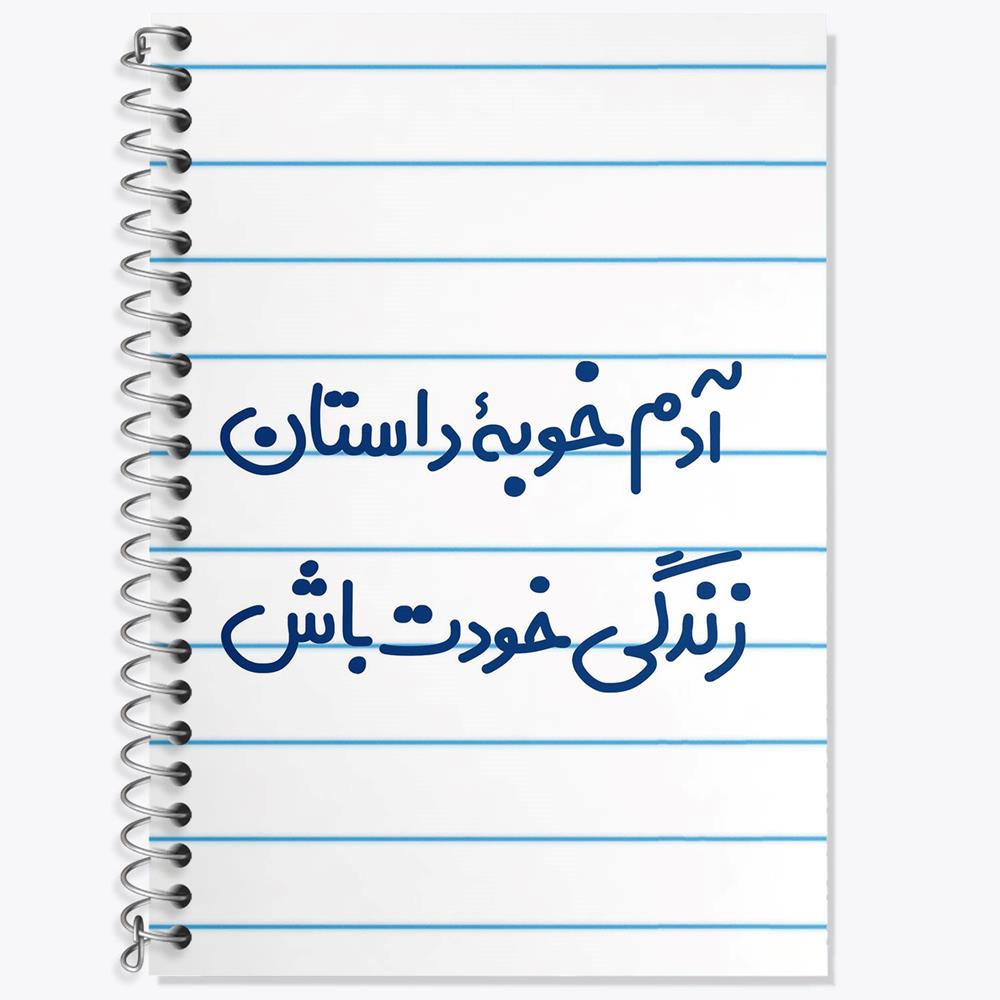 آدم خوبهٔ داستان
زندگی خودت باش